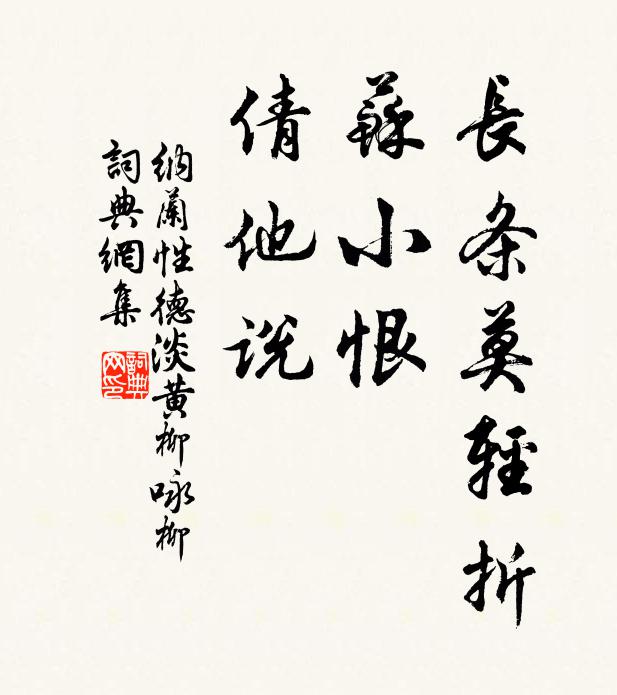 長条莫輕折
蘇小恨
倩他説
納蘭性德淡黄柳咏柳
詞典網集
詞典
网印